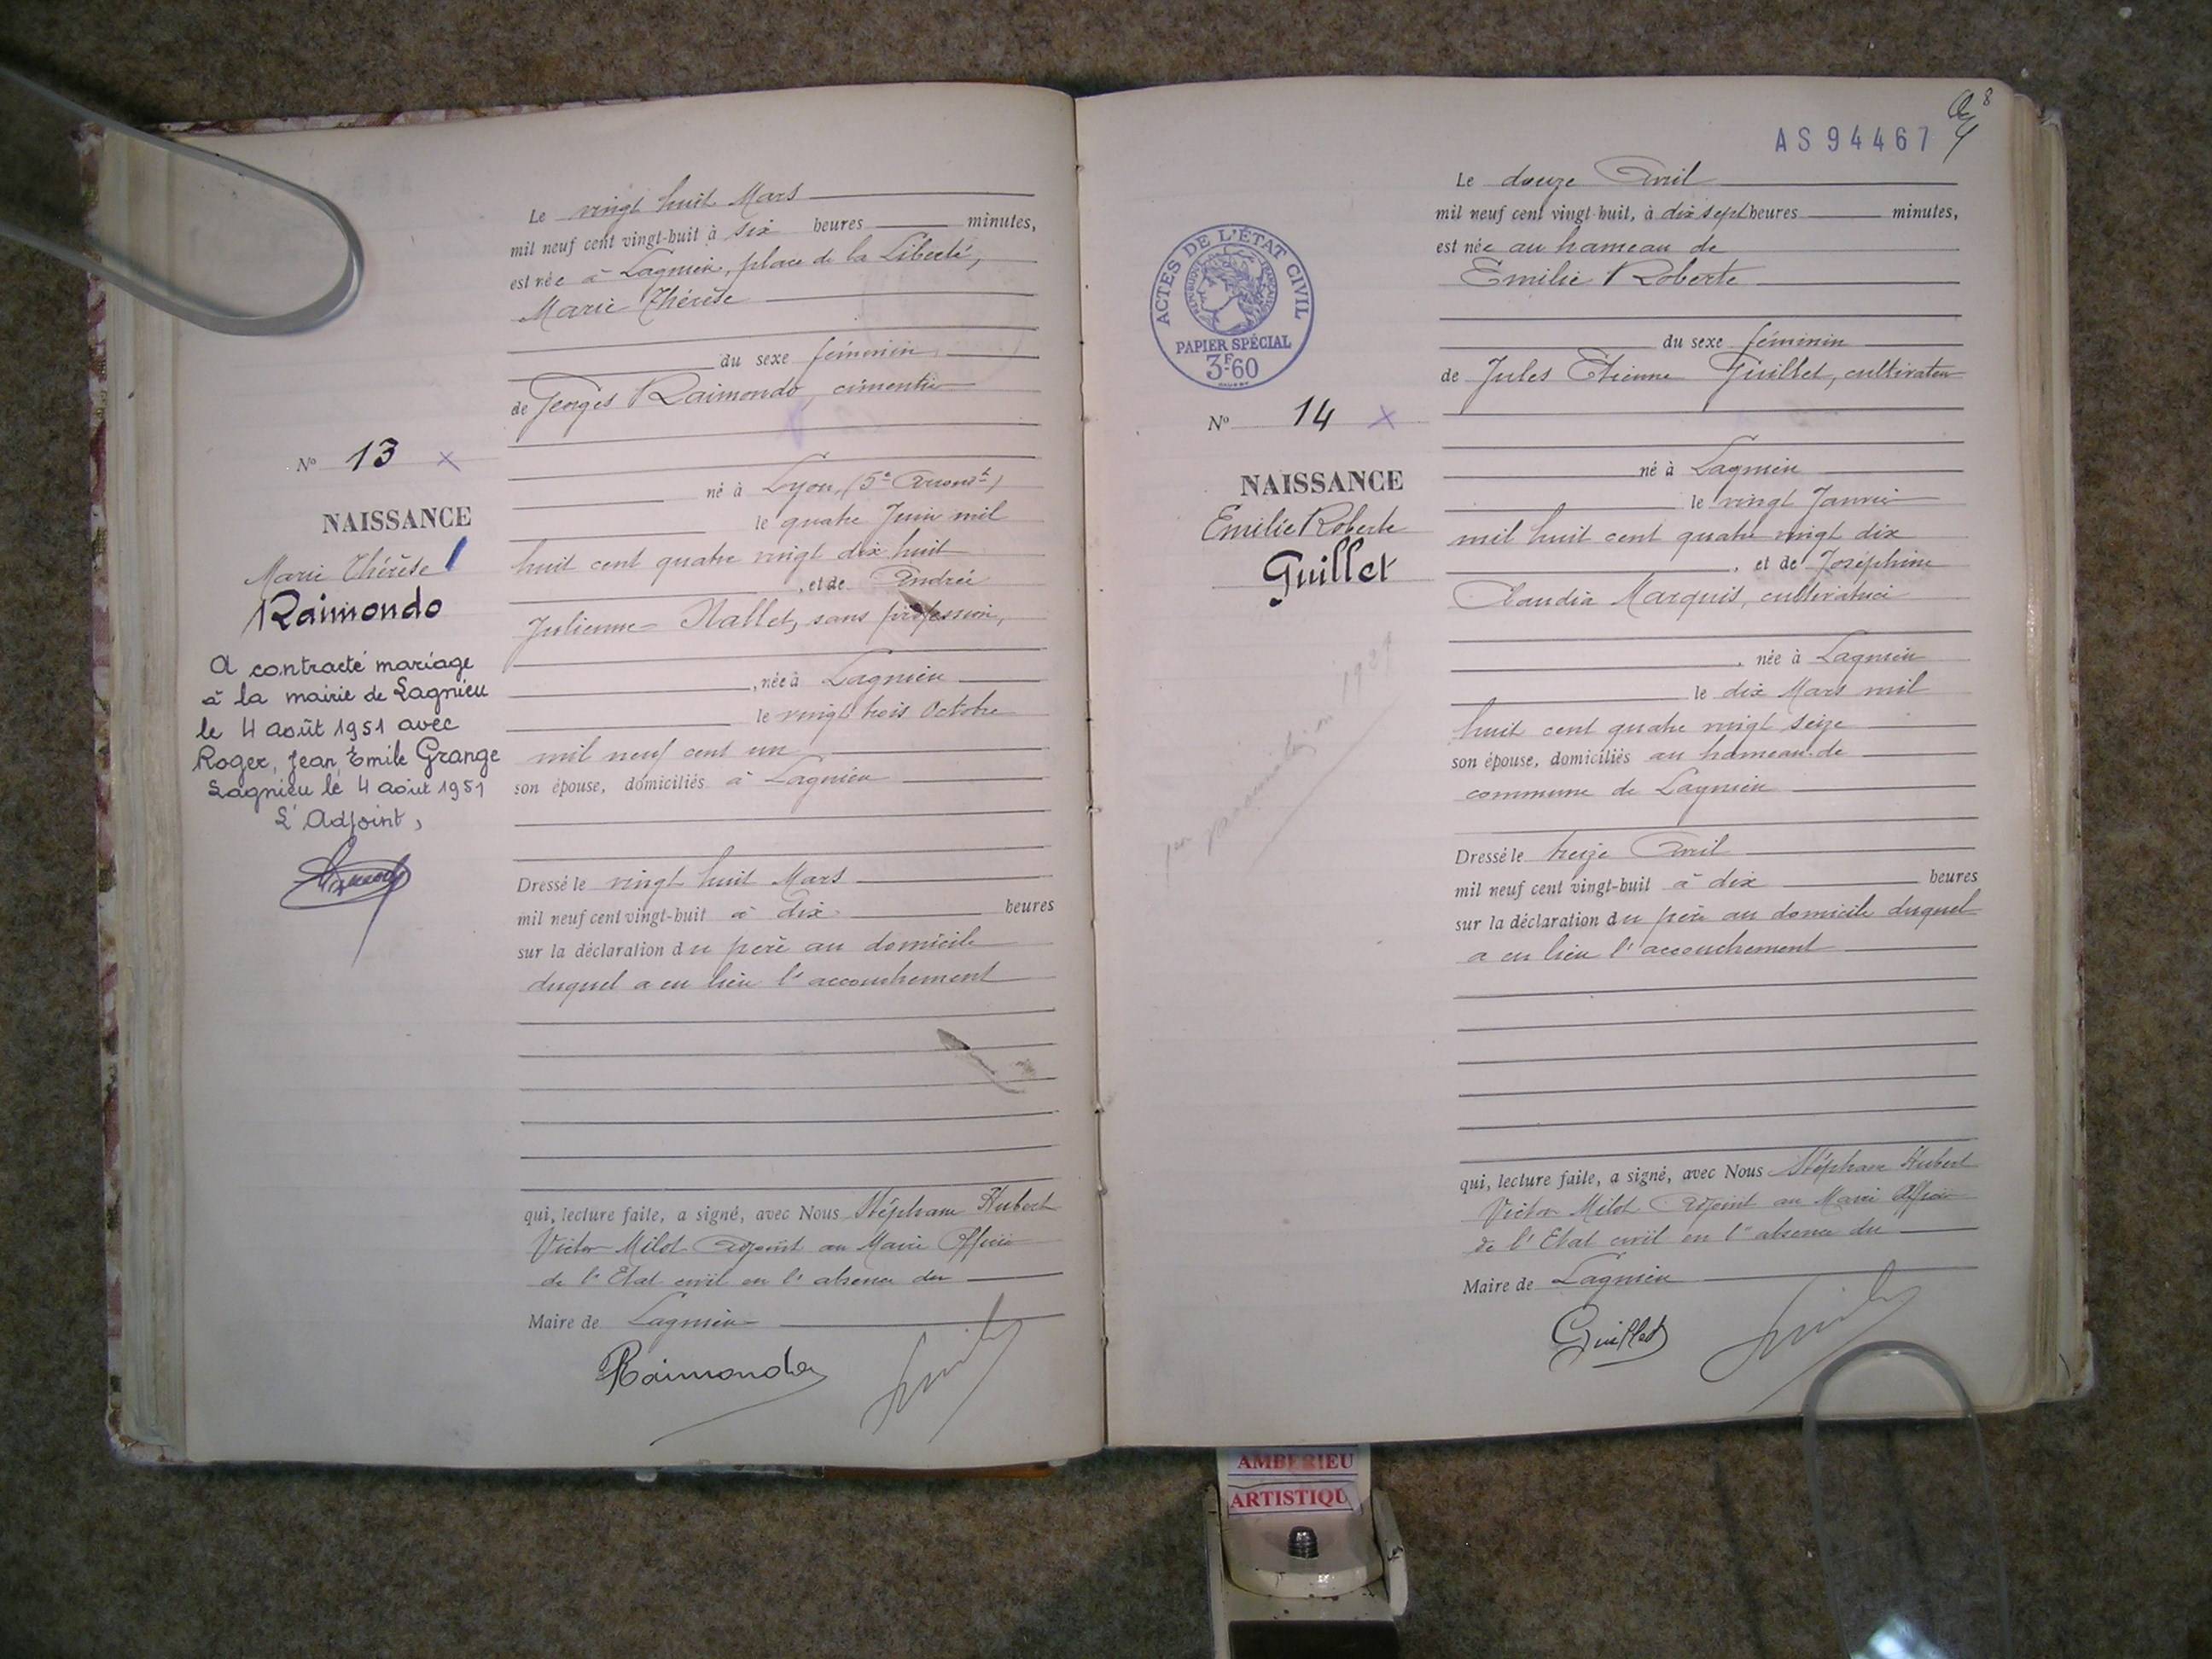 Le vingt huit Mars
mil neuf cent vingt-huit à six heures minutes,
est née à Lagnieu, place de la Liberté,
Marie Thérèse
du sexe féminin
de Georges Raimondo, cimentier
né à Lyon, (5e Arront)
le quatre Juin mil
huit cent quatre vingt dix huit
, et de Andrée
Julienne Nallet, sans profession,
, née à Lagnieu
le vingt trois Octobre
mil neuf cent un
son épouse, domiciliés à Lagnieu
Dressé le vingt huit Mars
mil neuf cent vingt-huit à dix heures
sur la déclaration du père au domicile
duquel a eu lieu l'accouchement
qui, lecture faite, a signé, avec Nous Stéphane Hubert
Victor Milot Adjoint au Maire Officier
de l'Etat civil en l'absence du
Maire de Lagnieu
Raimondo
No 13 x
NAISSANCE
Marie Thérèse
Raimondo
A contracté mariage
à la mairie de Lagnieu
le 4 août 1951 avec
Roger, Jean Emile Grange
Lagnieu le 4 août 1951
L'Adjoint,
8
AS 94467
Le douze Avril
mil neuf cent vingt-huit, à dix sept heures minutes,
est née au hameau de
Emilie Roberte
du sexe féminin
de Jules Etienne Guillet, cultivateur
né à Lagnieu
le vingt Janvier
mil huit cent quatre vingt dix
, et de Joséphine
Claudia Marquis, cultivatrice
, née à Lagnieu
le dix Mars mil
huit cent quatre vingt seize
son épouse, domiciliés au hameau de
commune de Lagnieu
Dressé le treize Avril
mil neuf cent vingt-huit à dix heures
sur la déclaration du père au domicile duquel
a eu lieu l'accouchement
qui, lecture faite, a signé, avec Nous Stéphane Hubert
Victor Milot Adjoint au Maire Officier
de l'Etat civil en l'absence du
Maire de Lagnieu
Guillet
ACTES DE L'ÉTAT CIVIL
RÉPUBLIQUE FRANÇAISE
PAPIER SPÉCIAL
3F60
No 14 x
NAISSANCE
Emilie Roberte
Guillet
AMBERIEU
ARTISTIQU